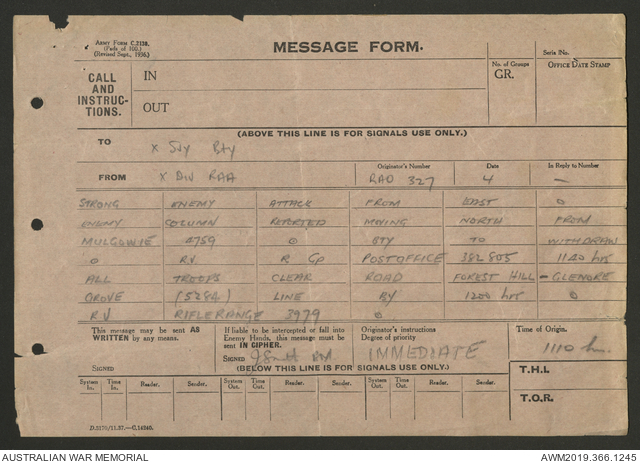 Army Form C.2128.
(Pads of 100.)
(Revised Sept., 1936.)
MESSAGE FORM.
Serial No.
CALL AND INSTRUC-TIONS.
IN
OUT
No. of Groups
GR.
OFFICE DATE STAMP
(ABOVE THIS LINE IS FOR SIGNALS USE ONLY.)
TO
x Svy Bty
FROM
x DIV RAA
Originator's Number
RAO 327
Date
4
In Reply to Number
—
STRONG ENEMY ATTACK FROM EAST O
ENEMY COLUMN REPORTED MOVING NORTH FROM
MULGOWIE 4759 O BTY TO WITHDRAW
O R.V. R Gp POSTOFFICE 382805 1140 hrs
ALL TROOPS CLEAR ROAD FOREST HILL – GLENORE
GROVE (5284) LINE BY 1200 hrs O
R.V. RIFLERANGE 3979 O
This message may be sent AS WRITTEN by any means.
SIGNED
If liable to be intercepted or fall into Enemy Hands, this message must be sent IN CIPHER.
SIGNED
Originator's instructions
Degree of priority
IMMEDIATE
Time of Origin.
1110 hrs.
(BELOW THIS LINE IS FOR SIGNALS USE ONLY.)
T.H.I.
T.O.R.
System In. Time In. Reader. Sender. System Out. Time Out. Reader. Sender. System Out. Time Out. Reader. Sender.
D.3170/11.37.—C.14840.
AUSTRALIAN WAR MEMORIAL
AWM2019.366.1245